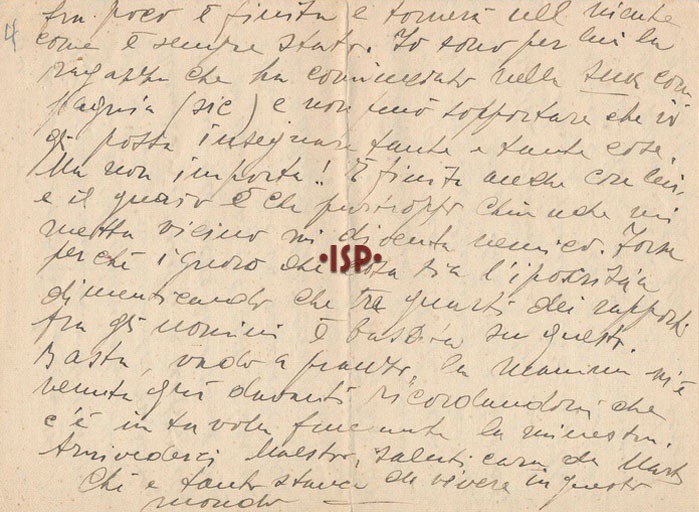 4
fra poco è finita e tornerà nell niente
come è sempre stato. Io sono per lui la
ragazza che ha cominciato nella sua com
pagnia (sic) e non può sopportare che io
gli possa insegnare tante e tante cose.
Ma non importa! È finita anche con lui,
e il guaio è che purtroppo chiunque mi
metta vicino mi diventa nemico. Forse
perché ignoro che cosa sia l'ipocrisia
dimenticando che tre quarti dei rapporti
fra gli uomini è basata su questi.
Basta, vado a pranzo, la mamma mi è
venuta già davanti ricordandomi che
c'è in tavola fumante la minestra.
Arrivederci Maestro, saluti cari da Marta
Chi è tanto stanca di vivere in questo
mondo
•ISP•